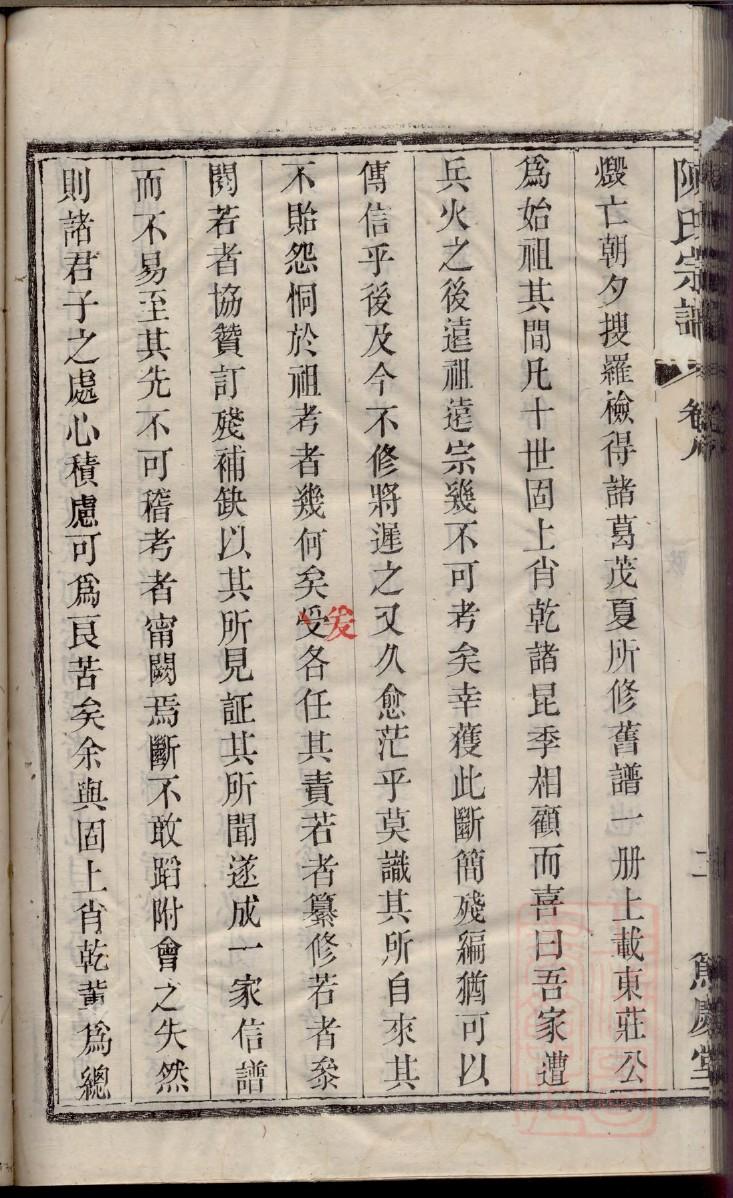 陳氏宗譜 卷序 二 篤慶堂
燬亡朝夕搜羅檢得諸葛茂夏所修舊譜一册上載東莊公
爲始祖其間凡十世固上肖乾諸昆季相顧而喜曰吾家遭
兵火之後遠祖遠宗幾不可考矣幸獲此斷簡殘編猶可以
傳信乎後及今不修將遲之又久愈茫乎莫識其所自來其
不貽怨恫於祖考者幾何矣受各任其責若者纂修若者叅
爰
閱若者協贊訂殘補缺以其所見証其所聞遂成一家信譜
而不易至其先不可稽考者甯闕焉斷不敢蹈附會之失然
則諸君子之處心積慮可爲良苦矣余與固上肖乾董爲總